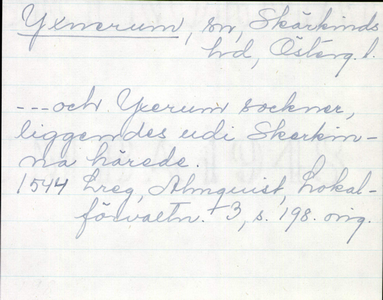 Yxnerum, sn, Skärkinds
hd, Österg. l.
---och Yxerum sockner,
liggendes udi Skerkin-
na härede.
1544 Lreg, Almquist, Lokal-
förvaltn. 3, s. 198. orig.